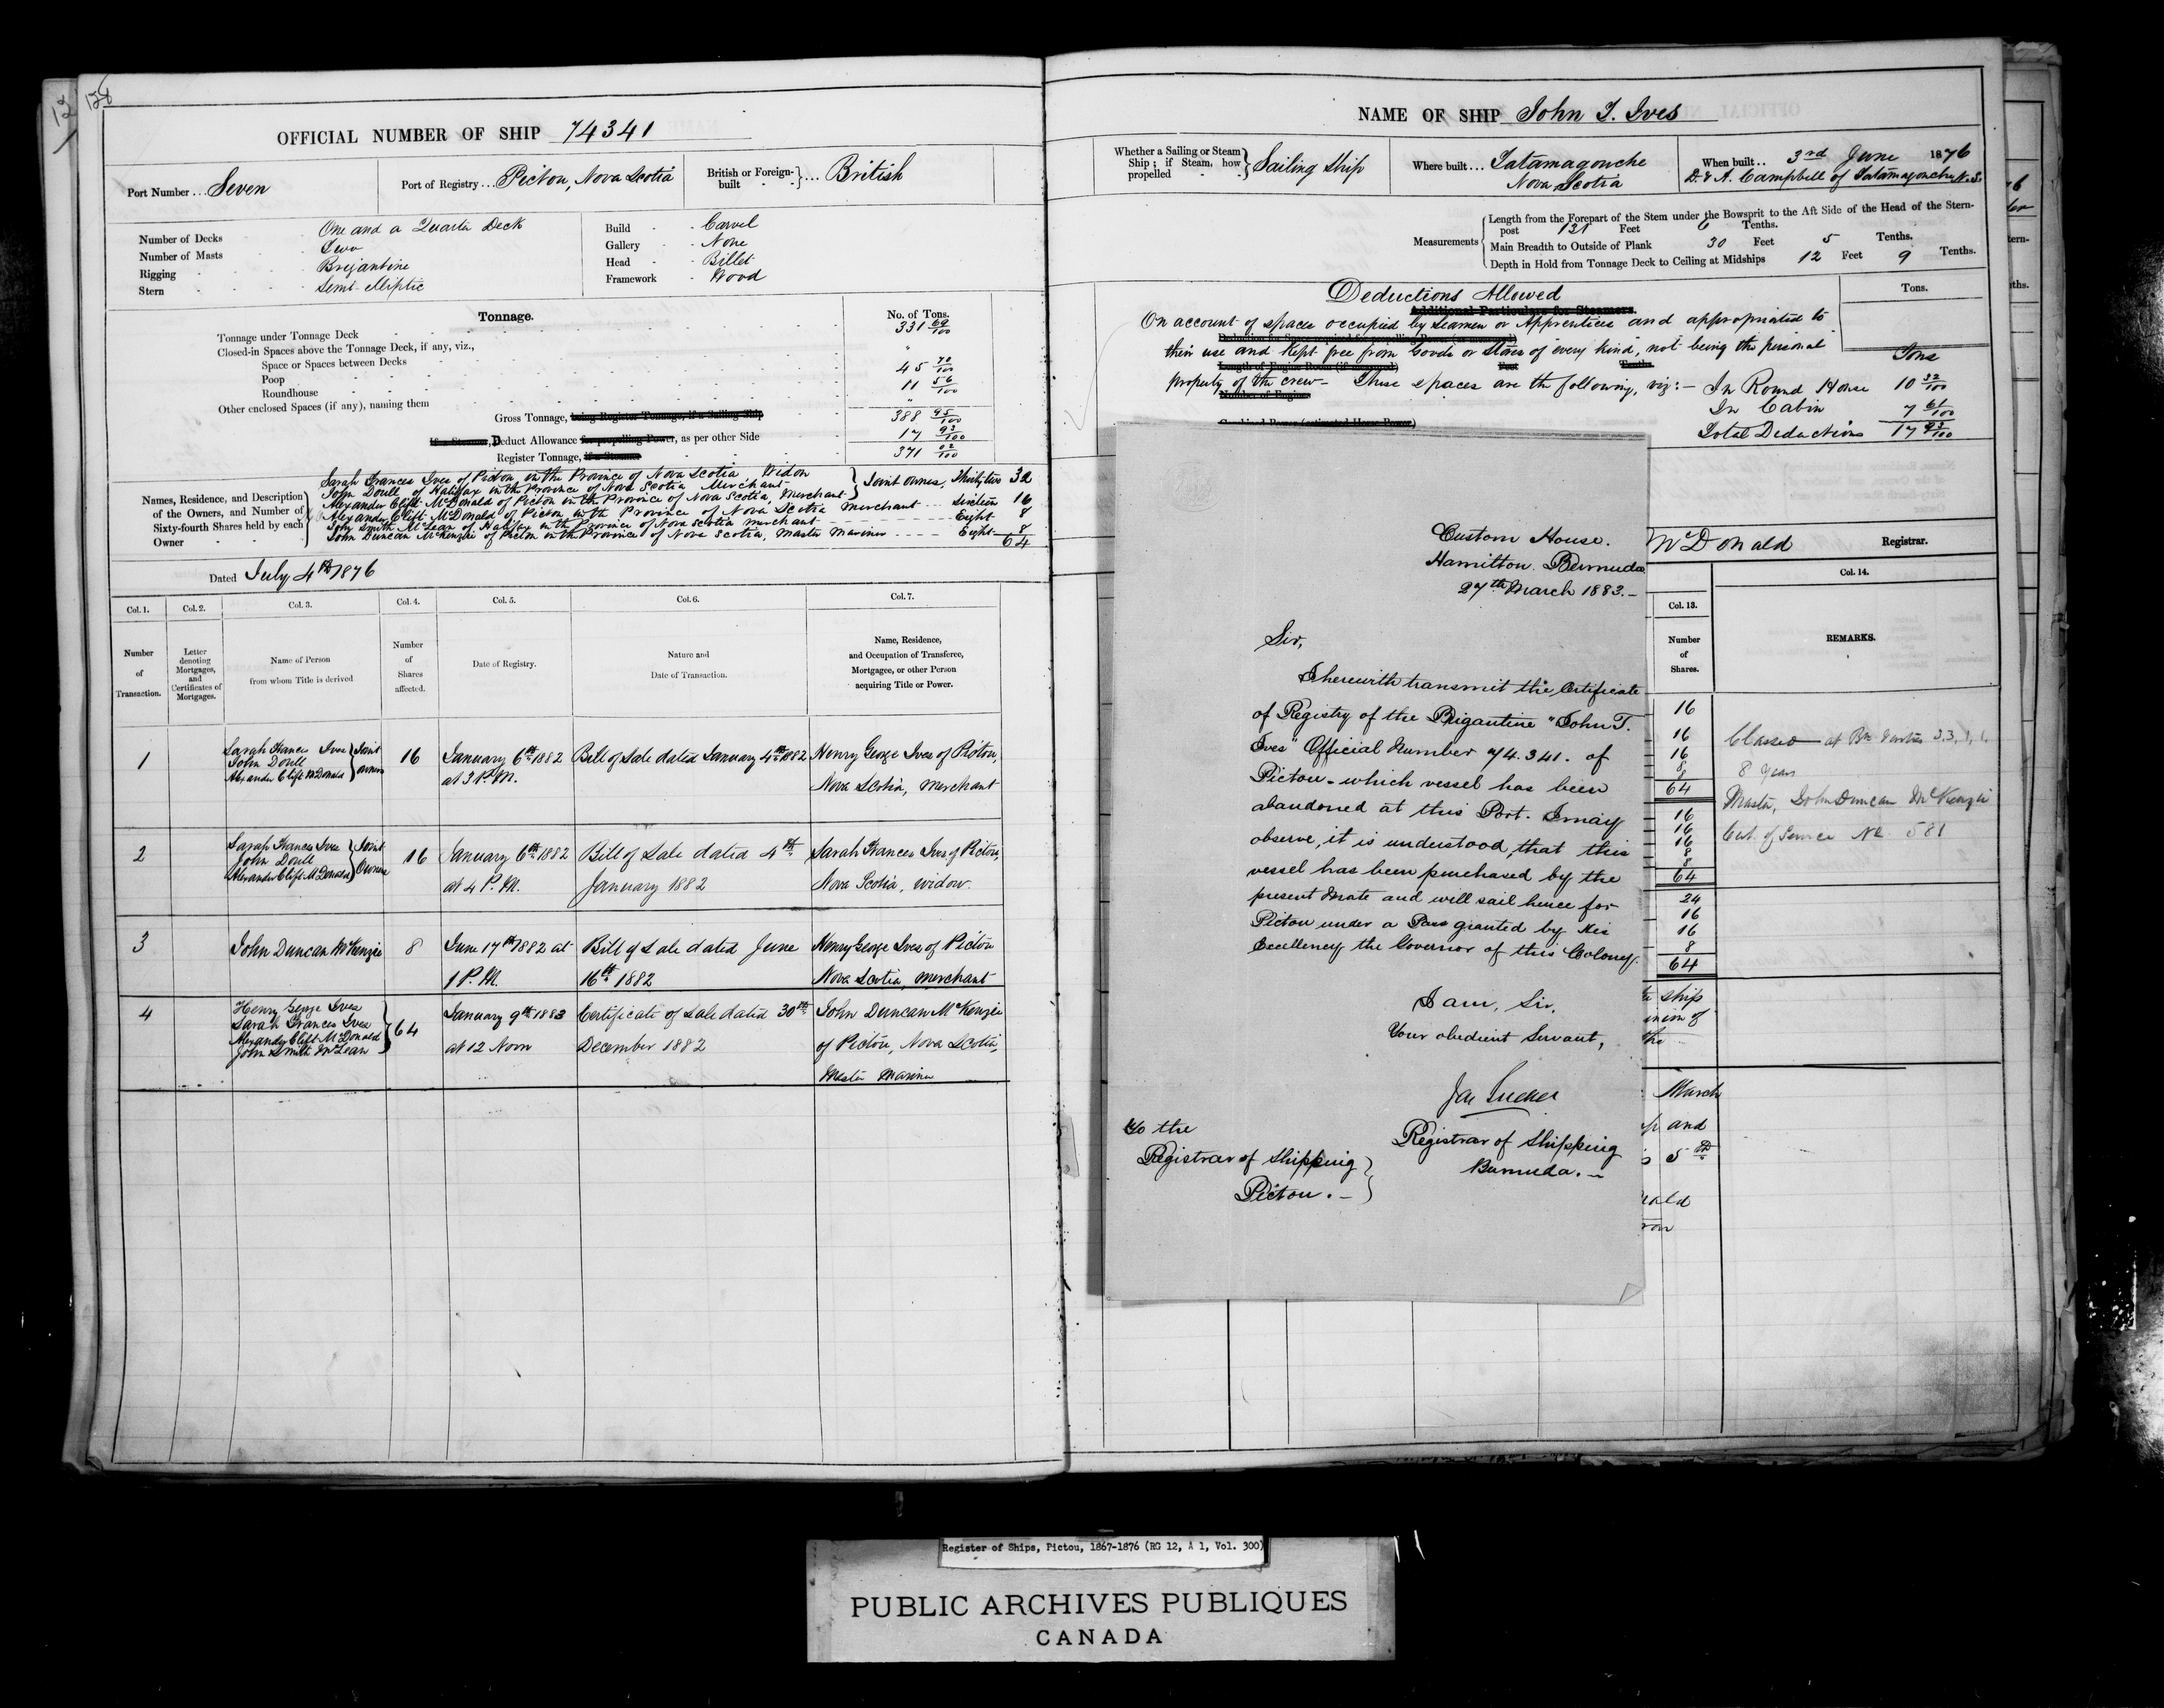 128
OFFICIAL NUMBER OF SHIP 74341
Port Number ... Seven
Port of Registry ... Pictou, Nova Scotia
British or Foreign-built } ... British
Number of Decks One and a Quarter Deck
Number of Masts Two
Rigging Brigantine
Stern Semi-elliptic
Build Carvel
Gallery None
Head Billet
Framework Wood
Tonnage. No. of Tons.
Tonnage under Tonnage Deck 331 69/100
Closed-in Spaces above the Tonnage Deck, if any, viz., "
Space or Spaces between Decks
Poop 45 70/100
Roundhouse 11 56/100
Other enclosed Spaces (if any), naming them "
Gross Tonnage, being Register Tonnage, if a Sailing Ship 388 95/100
If a Steamer, Deduct Allowance for propelling Power, as per other Side 17 93/100
Register Tonnage, if a Steamer 371 02/100
Names, Residence, and Description of the Owners, and Number of Sixty-fourth Shares held by each Owner
Sarah Frances Ives of Pictou in the Province of Nova Scotia Widow
John Doull of Halifax in the Province of Nova Scotia Merchant
Alexander Clift McDonald of Pictou in the Province of Nova Scotia, Merchant } Joint owners, Thirty two 32
Alexander Clift McDonald of Pictou in the Province of Nova Scotia Merchant Sixteen 16
John Smith McLean of Halifax in the Province of Nova Scotia merchant Eight 8
John Duncan McKenzie of Pictou in the Province of Nova Scotia, Master Mariner Eight 8
64
Dated July 4th 1876
Col. 1. Col. 2. Col. 3. Col. 4. Col. 5. Col. 6. Col. 7.
Number of Transaction.
Letter denoting Mortgages, and Certificates of Mortgages.
Name of Person from whom Title is derived
Number of Shares affected.
Date of Registry.
Nature and Date of Transaction.
Name, Residence, and Occupation of Transferee, Mortgagee, or other Person acquiring Title or Power.
1 Sarah Frances Ives John Doull Alexander Clift McDonald } Joint owners 16 January 6th 1882 at 3 P.M. Bill of Sale dated January 4th 1882 Henry George Ives of Pictou, Nova Scotia, merchant
2 Sarah Frances Ives John Doull Alexander Clift McDonald } Joint Owners 16 January 6th 1882 at 4 P.M. Bill of Sale dated 4th January 1882 Sarah Frances Ives of Pictou, Nova Scotia, widow.
3 John Duncan McKenzie 8 June 17th 1882 at 1 P.M. Bill of Sale dated June 16th 1882 Henry George Ives of Pictou Nova Scotia, merchant
4 Henry George Ives Sarah Frances Ives Alexander Clift McDonald John Smith McLean } 64 January 9th 1883 at 12 Noon Certificate of Sale dated 30th December 1882 John Duncan McKenzie of Pictou, Nova Scotia, Master Mariner
NAME OF SHIP John T. Ives
Whether a Sailing or Steam Ship; if Steam, how propelled } Sailing Ship
Where built ... Tatamagouche Nova Scotia
When built .. 3rd June 1876
D. & A. Campbell of Tatamagouche N.S.
Measurements
Length from the Forepart of the Stem under the Bowsprit to the Aft Side of the Head of the Stern-post 121 Feet 6 Tenths.
Main Breadth to Outside of Plank 30 Feet 5 Tenths.
Depth in Hold from Tonnage Deck to Ceiling at Midships 12 Feet 9 Tenths.
Deductions Allowed
Additional Particulars for Steamers.
Tons.
On account of spaces occupied by Seamen or Apprentices and appropriated to
their use and kept free from Goods or Stores of every kind, not being the personal
property of the crew - These spaces are the following, viz: - In Round House 10 32/100
Tons
In Cabin 7 61/100
Total Deductions 17 93/100
McDonald Registrar.
Col. 13. Col. 14.
Number of Shares.
REMARKS.
16
16
16
8
8
64
16
16
16
8
8
64
24
16
16
8
64
Closed
8 Years
Master, John Duncan McKenzie
Cert. of Service No 581
ship
the
March
and
5th
Custom House.
Hamilton. Bermuda
27th March 1883. -
Sir,
I herewith transmit the Certificate
of Registry of the Brigantine "John T.
Ives" Official Number 74.341. of
Pictou - which vessel has been
abandoned at this Port. I may
observe, it is understood, that this
vessel has been purchased by the
present Mate and will sail hence for
Pictou under a Pass granted by His
Excellency the Governor of this Colony.
I am, Sir,
Your obedient Servant,
Registrar of Shipping
Bermuda. -
To the
Registrar of Shipping
Pictou. -
Register of Ships, Pictou, 1867-1876 (RG 12, A 1, Vol. 300)
PUBLIC ARCHIVES PUBLIQUES
CANADA